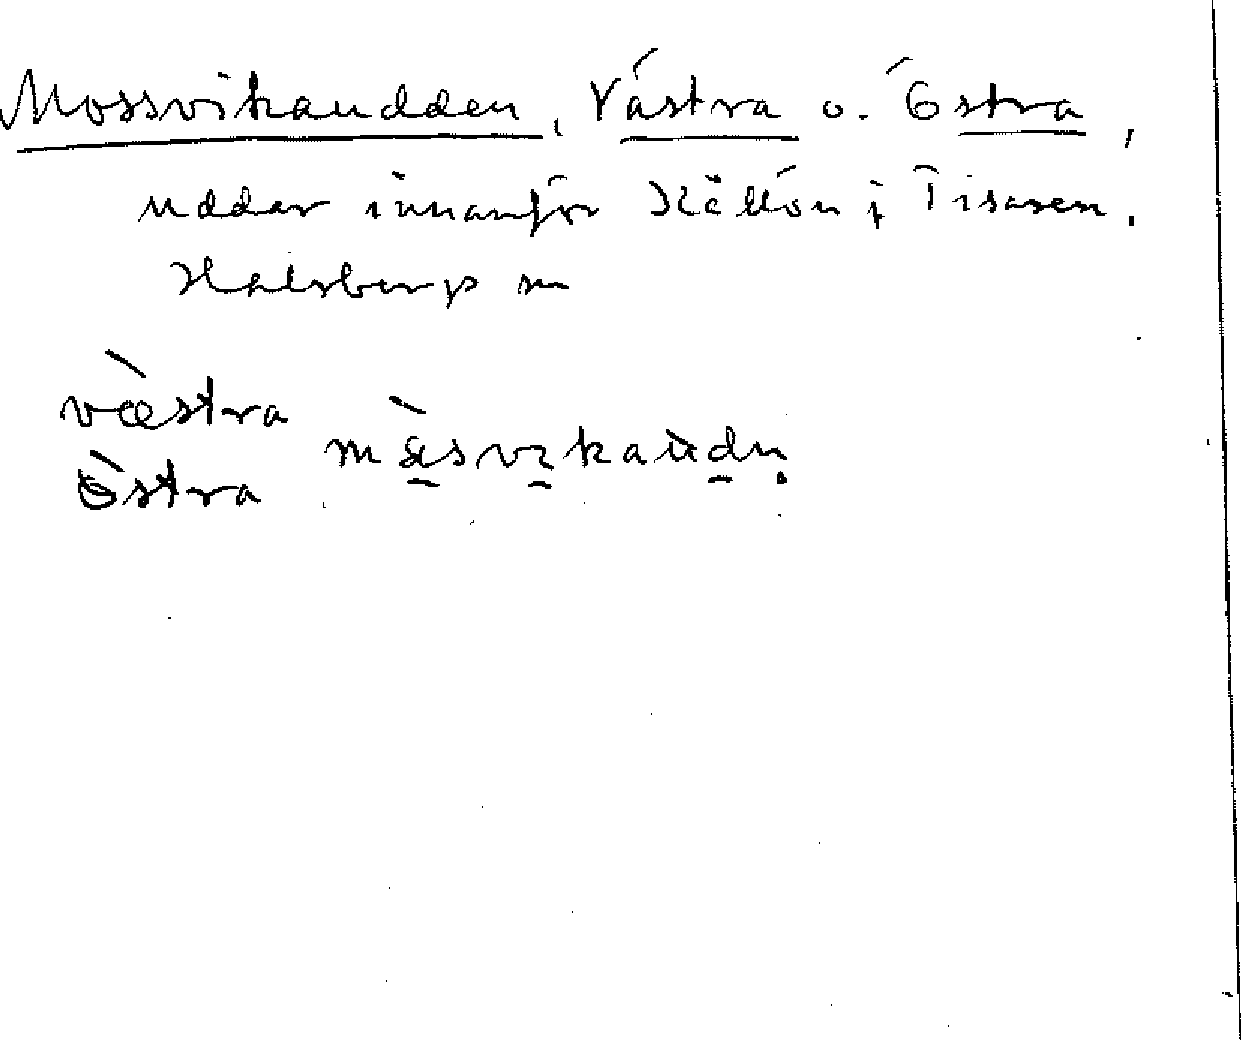 Mossvikaudden, Västra o. Östra,
uddar innanför Källön i Tisaren.
Hallsbergs sn
væ̀stra
ò̈stra